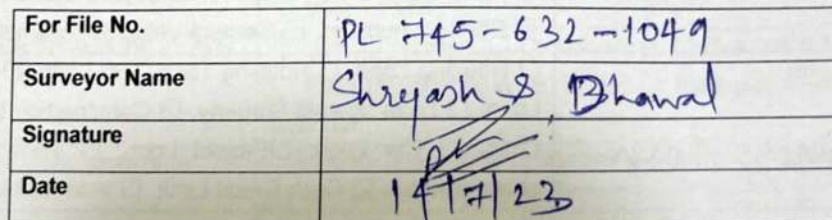 For File No. PL 745-632-1049
Surveyor Name Shreyash S, Bhawal
Signature
Date 14/7/23